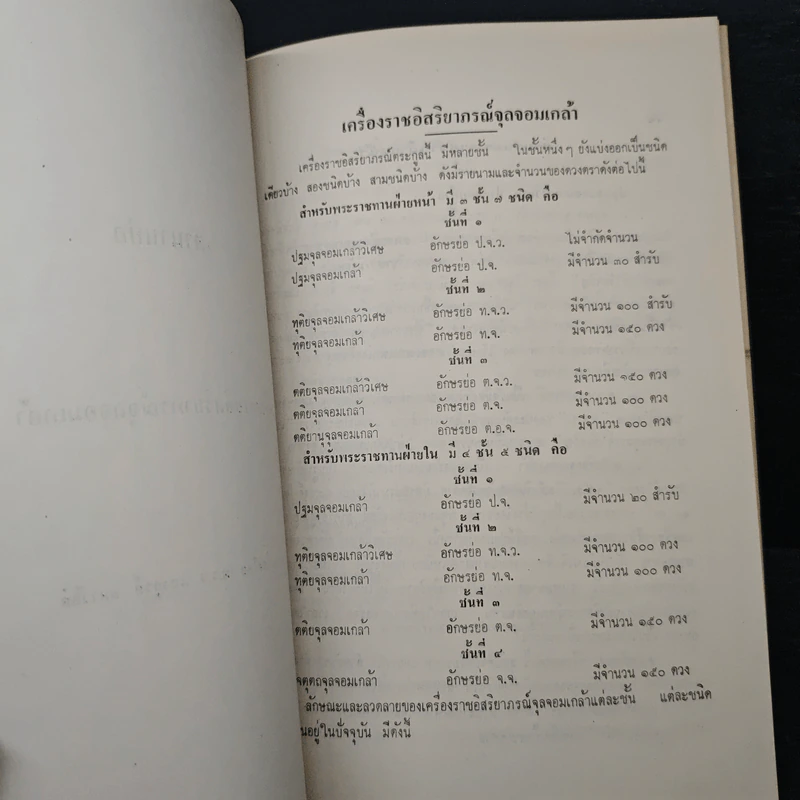 เครื่องราชอิสริยาภรณ์จุลจอมเกล้า
เครื่องราชอิสริยาภรณ์ตระกูลนี้ มีหลายชั้น ในชั้นหนึ่ง ๆ ยังแบ่งออกเป็นชนิด
เดียวบ้าง สองชนิดบ้าง สามชนิดบ้าง ดังมีรายนามและจำนวนของดวงตราดังต่อไปนี้
สำหรับพระราชทานฝ่ายหน้า มี ๓ ชั้น ๗ ชนิด คือ
ชั้นที่ ๑
ปฐมจุลจอมเกล้าวิเศษ อักษรย่อ ป.จ.ว. ไม่จำกัดจำนวน
ปฐมจุลจอมเกล้า อักษรย่อ ป.จ. มีจำนวน ๓๐ สำรับ
ชั้นที่ ๒
ทุติยจุลจอมเกล้าวิเศษ อักษรย่อ ท.จ.ว. มีจำนวน ๑๐๐ สำรับ
ทุติยจุลจอมเกล้า อักษรย่อ ท.จ. มีจำนวน ๑๕๐ ดวง
ชั้นที่ ๓
ตติยจุลจอมเกล้าวิเศษ อักษรย่อ ต.จ.ว. มีจำนวน ๑๕๐ ดวง
ตติยจุลจอมเกล้า อักษรย่อ ต.จ. มีจำนวน ๑๐๐ ดวง
ตติยานุจุลจอมเกล้า อักษรย่อ ต.อ.จ. มีจำนวน ๑๐๐ ดวง
สำหรับพระราชทานฝ่ายใน มี ๔ ชั้น ๕ ชนิด คือ
ชั้นที่ ๑
ปฐมจุลจอมเกล้า อักษรย่อ ป.จ. มีจำนวน ๒๐ สำรับ
ชั้นที่ ๒
ทุติยจุลจอมเกล้าวิเศษ อักษรย่อ ท.จ.ว. มีจำนวน ๑๐๐ ดวง
ทุติยจุลจอมเกล้า อักษรย่อ ท.จ. มีจำนวน ๑๐๐ ดวง
ชั้นที่ ๓
ตติยจุลจอมเกล้า อักษรย่อ ต.จ. มีจำนวน ๑๕๐ ดวง
ชั้นที่ ๔
จตุตถจุลจอมเกล้า อักษรย่อ จ.จ. มีจำนวน ๑๕๐ ดวง
ลักษณะและลวดลายของเครื่องราชอิสริยาภรณ์จุลจอมเกล้าแต่ละชั้น แต่ละชนิด
นอยู่ในปัจจุบัน มีดังนี้